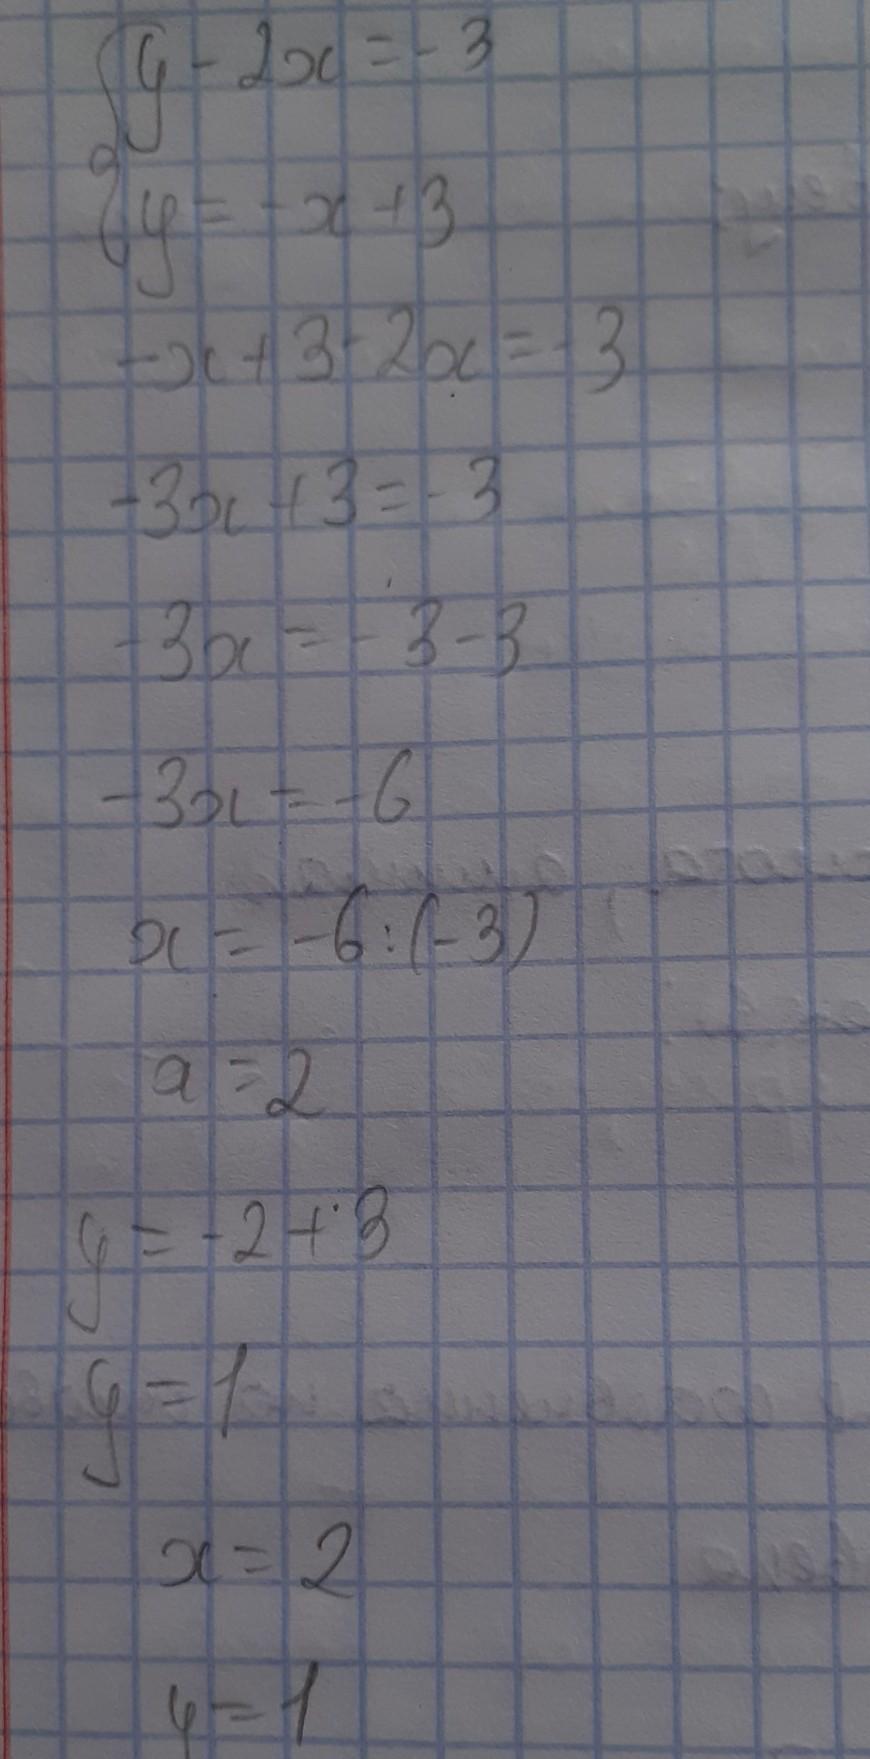 {y - 2x = - 3
{y = - x + 3
- x + 3 - 2x = - 3
- 3x + 3 = - 3
- 3x = - 3 - 3
- 3x = - 6
x = - 6 : (- 3)
x = 2
y = - 2 + 3
y = 1
x = 2
y = 1